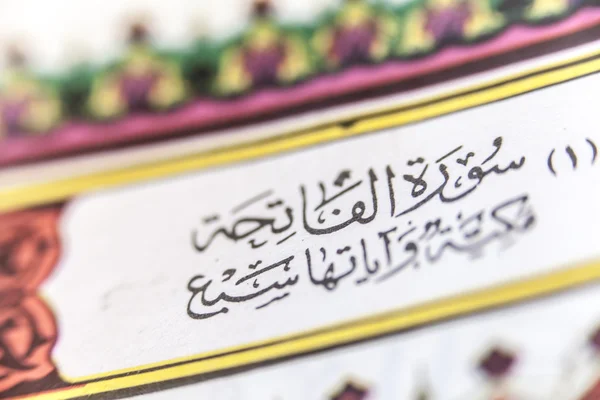 (١) سُورَة الفَاتِحَة
مَكيَّة وَآيَاتهَا سَبع